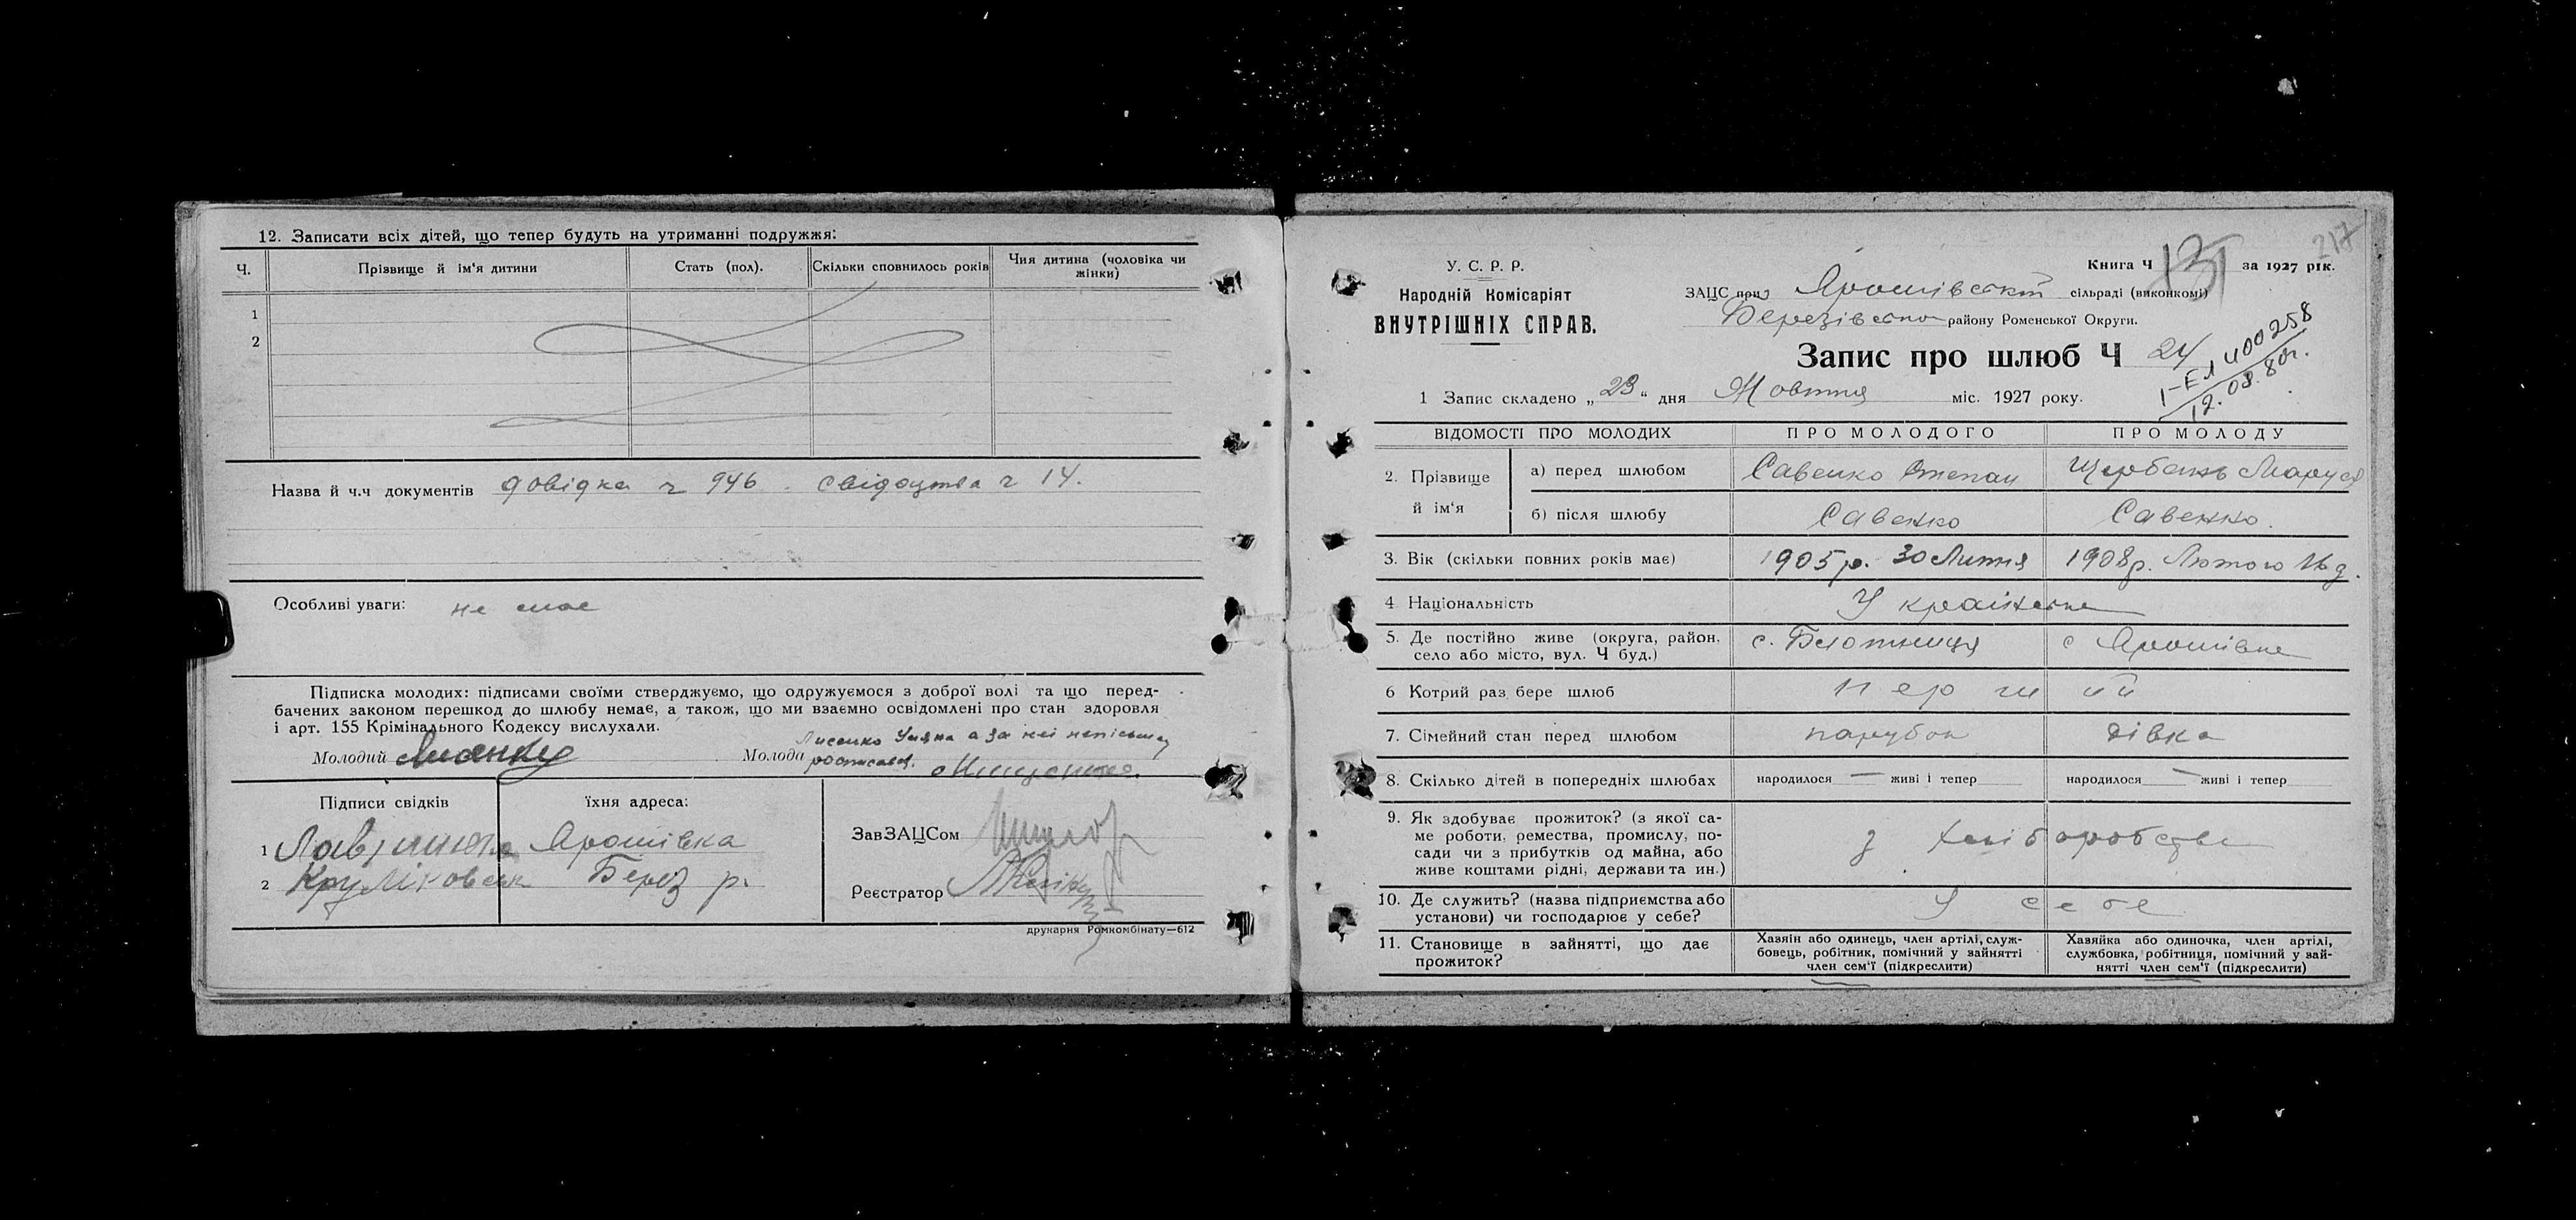 12. Записати всіх дітей, що тепер будуть на утриманні подружжя:
Ч. Прізвище й ім'я дитини Стать (пол). Скільки сповнилось років Чия дитина (чоловіка чи жінки)
1
2
Назва й ч.ч документів довідка ч 946. свідоцтва ч 14.
Особливі уваги: не має
Підписка молодих: підписами своїми стверджуємо, що одружуємося з доброї волі та що перед-
бачених законом перешкод до шлюбу немає, а також, що ми взаємно освідомлені про стан здоровля
і арт. 155 Крімінального Кодексу вислухали.
Молодий Молода Лисенко Уляна а за неї неписьмен
росписався
Підписи свідків їхня адреса:
1 Ярошівка
2 Берез р.
ЗавЗАЦСом
Реєстратор
друкарня Ромкомбінату—612
217
У. С. Р. Р.
Народній Комісаріят
ВНУТРІШНІХ СПРАВ.
Книга Ч 131 за 1927 рік.
ЗАЦС при Ярошівській сільраді (виконкомі)
Березівсько району Роменської Округи.
Запис про шлюб Ч 24
I-ЕЛ 400258
12.08.80г.
1 Запис складено „23" дня Жовтня міс. 1927 року.
ВІДОМОСТІ ПРО МОЛОДИХ ПРО МОЛОДОГО ПРО МОЛОДУ
2. Прізвище й ім'я а) перед шлюбом Савенко Степан Щербань Маруся
б) після шлюбу Савенко Савенко.
3. Вік (скільки повних років має) 1905 р. 30 Липня 1908 р. Лютого 16 д.
4 Національність Українська
5. Де постійно живе (округа, район, село або місто, вул. Ч буд.) с. с Ярошівка
6 Котрий раз бере шлюб перший
7. Сімейний стан перед шлюбом парубок дівка
8. Скілько дітей в попередніх шлюбах народилося — живі і тепер народилося — живі і тепер
9. Як здобуває прожиток? (з якої са-
ме роботи, ремества, промислу, по-
сади чи з прибутків од майна, або
живе коштами рідні, держави та ин.) з хліборобства
10. Де служить? (назва підприємства або
установи) чи господарює у себе? У себе
11. Становище в зайнятті, що дає
прожиток?
Хазяін або одинець, член артілі, служ-
бовець, робітник, помічний у зайнятті
член сем'ї (підкреслити)
Хазяйка або одиночка, член артілі,
службовка, робітниця, помічний у зай-
нятті член сем'ї (підкреслити)